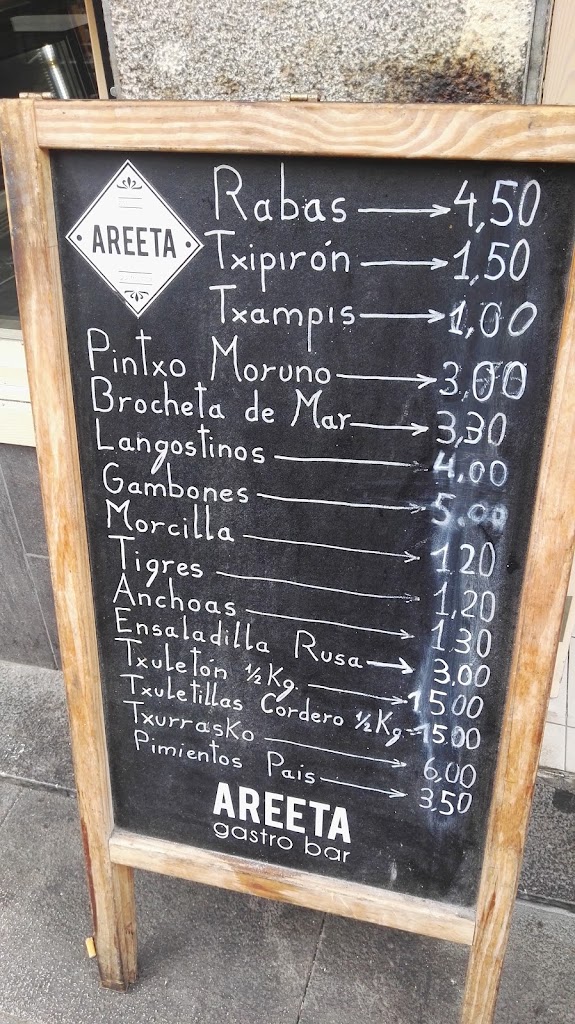 AREETA
Rabas 4,50
Txipirón 1,50
Txampis 1,00
Pintxo Moruno 3,00
Brocheta de Mar 3,30
Langostinos 4.00
Gambones 5.00
Morcilla 1.20
Tigres 1,20
Anchoas 1.30
Ensaladilla Rusa 3.00
Txuletón ½ Kg. 15.00
Txuletillas Cordero ½ Kg 15.00
Txurrasko 6,00
Pimientos Pais 3,50
AREETA
gastro bar